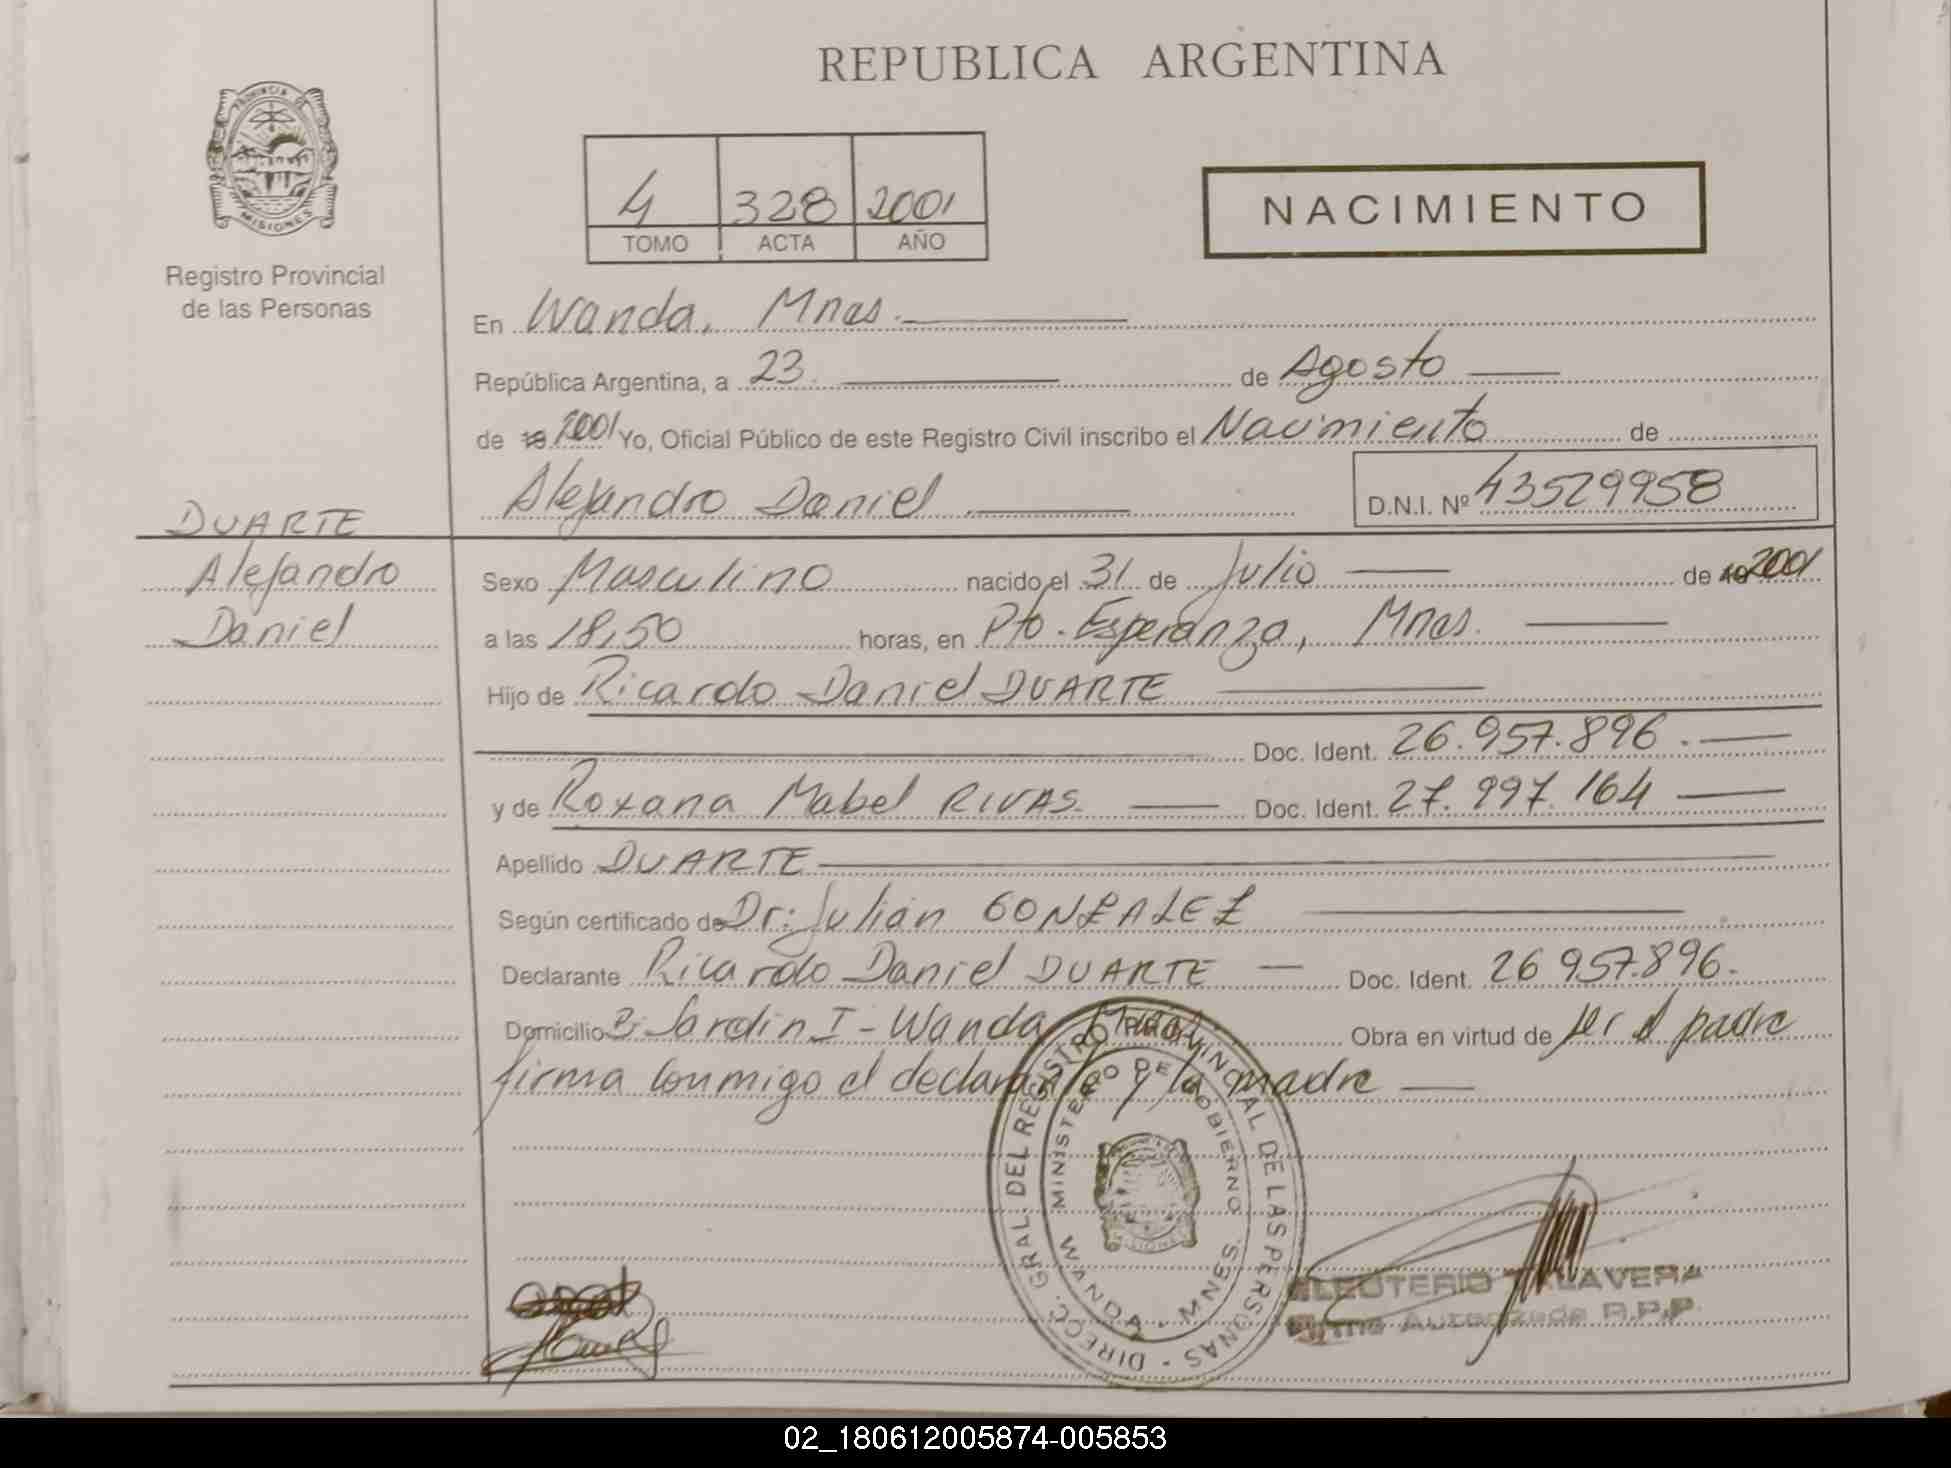 REPUBLICA ARGENTINA
PROVINCIA DE
MISIONES
Registro Provincial
de las Personas
4 328 2001
TOMO ACTA AÑO
NACIMIENTO
En Wanda, Mnes.
República Argentina, a 23 de Agosto
de 19 2001 Yo, Oficial Público de este Registro Civil inscribo el Nacimiento de
Alejandro Daniel D.N.I. Nº 43529958
DUARTE
Alejandro
Daniel
Sexo Masculino nacido el 31 de Julio de 19 2001
a las 18,50 horas, en Pto. Esperanza, Mnes.
Hijo de Ricardo Daniel DUARTE
Doc. Ident. 26.957.896.
y de Roxana Mabel RIVAS. Doc. Ident. 27.997.164
Apellido DUARTE
Según certificado de Dr: Julián GONZALEZ
Declarante Ricardo Daniel DUARTE Doc. Ident. 26957.896.
Domicilio Bº Jardin I - Wanda, Mnes. Obra en virtud de ser el padre
firma conmigo el declarante y la madre
DIRECC. GRAL. DEL REGISTRO PROVINCIAL DE LAS PERSONAS
MINISTERIO DE GOBIERNO
WANDA - MNES.
MISIONES
ELEUTERIO TALAVERA
Firma Autorizada R.P.P.
02_180612005874-005853